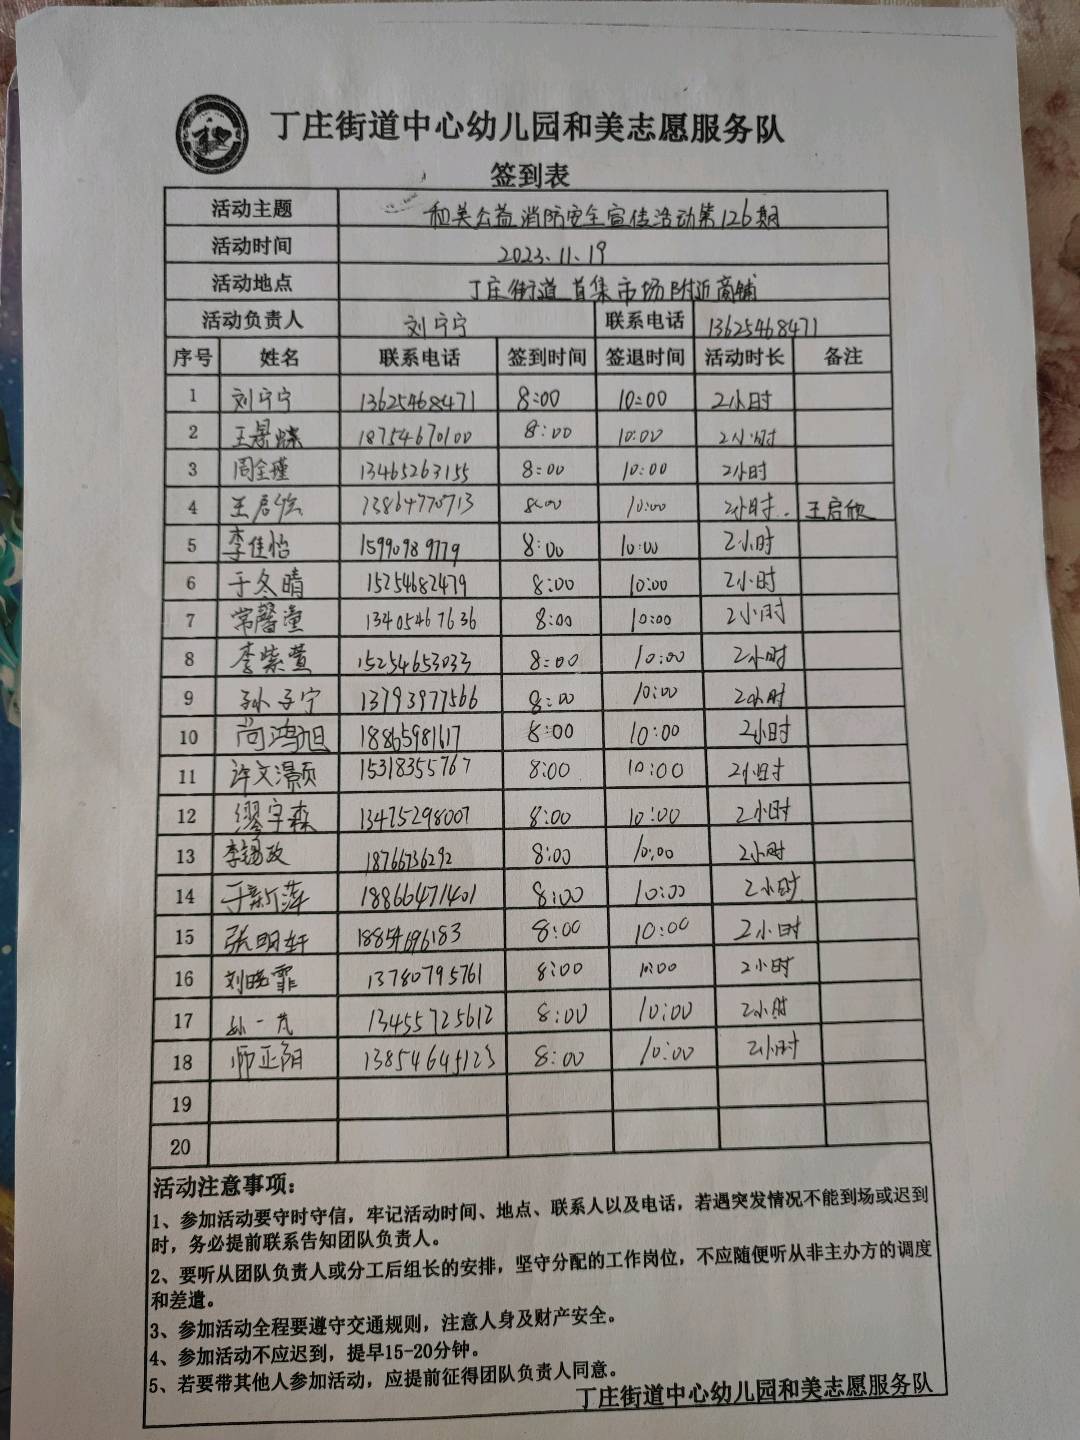 丁庄街道中心幼儿园和美志愿服务队
签到表
活动主题 和美公益消防安全宣传活动第126期
活动时间 2023.11.19
活动地点 丁庄街道首集市场附近商铺
活动负责人 刘宁宁 联系电话 13625468471
序号 姓名 联系电话 签到时间 签退时间 活动时长 备注
1 刘宁宁 13625468471 8:00 10:00 2小时
2 18754670100 8:00 10:00 2小时
3 周全瑾 13465263155 8:00 10:00 2小时
4 王启 13864770713 8:00 10:00 2小时 王启欣
5 李佳怡 15990989779 8:00 10:00 2小时
6 于冬晴 15254682479 8:00 10:00 2小时
7 常馨潼 13405467636 8:00 10:00 2小时
8 李紫萱 15254653033 8:00 10:00 2小时
9 孙子宁 13793977566 8:00 10:00 2小时
10 尚鸿旭 18865981617 8:00 10:00 2小时
11 许文灏 15318355767 8:00 10:00 2小时
12 缪宇森 13475298007 8:00 10:00 2小时
13 李锡政 18766736292 8:00 10:00 2小时
14 于新萍 18866471401 8:00 10:00 2小时
15 张明轩 8:00 10:00 2小时
16 刘晓霏 13780795761 8:00 10:00 2小时
17 孙一 13455725612 8:00 10:00 2小时
18 师正阳 13854645123 8:00 10:00 2小时
19
20
活动注意事项：
1、参加活动要守时守信，牢记活动时间、地点、联系人以及电话，若遇突发情况不能到场或迟到
时，务必提前联系告知团队负责人。
2、要听从团队负责人或分工后组长的安排，坚守分配的工作岗位，不应随便听从非主办方的调度
和差遣。
3、参加活动全程要遵守交通规则，注意人身及财产安全。
4、参加活动不应迟到，提早15-20分钟。
5、若要带其他人参加活动，应提前征得团队负责人同意。
丁庄街道中心幼儿园和美志愿服务队